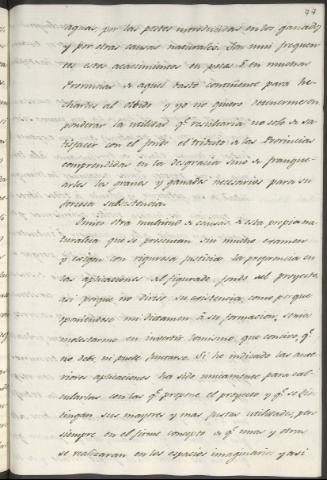 77
aguas, por las pestes introducidas en los ganados
y por otras causas naturales. Son mui frequen-
tes estos acaecimientos en pocas ò en muchas
Provincias de aquel basto continente para he-
charlos al olbido y yo no quiero detenerme en
ponderar la utilidad qᵉ resultaria no solo de sa-
tisfacer con el fondo el tributo de las Provincias
comprendidas en la desgracia sino de franque-
arles los granos y ganados necesarios para su
forzosa subsistencia.
Omito otra multitud de causas de esta propia na-
turaleza que se presentan sin mucho examen
y exigen con rigurosa justicia la preferencia en
las aplicaciones al figurado fondo del proyecto
asi porque no dicto su existencia, como porque
oponiendose mi dictamen à su formacion, seria
molestarme en invertir lo mismo, que concivo, qᵉ
no debe ni puede juntarse. Si he indicado las ante-
riores aplicaciones ha sido unicamente para cal-
cularlas con las qᵉ propone el proyecto y qᵉ se dis-
tingan sus mayores y mas justas utilidades, pero
siempre en el firme concepto de qᵉ unas y otras
se realizaran en los espacios imaginarios y asi